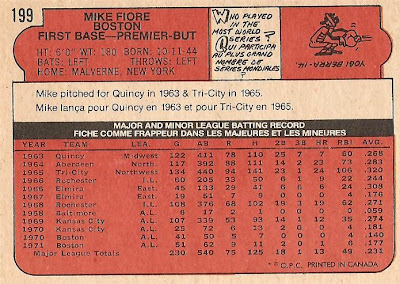 199
MIKE FIORE
BOSTON
FIRST BASE—PREMIER-BUT
HT: 6'0" WT: 180 BORN: 10-11-44
BATS: LEFT THROWS: LEFT
HOME: MALVERNE, NEW YORK
WHO PLAYED
IN THE
MOST WORLD
SERIES?
QUI PARTICIPA
AU PLUS GRAND
NOMBRE DE
SÉRIES MONDIALES?
YOGI BERRA-14.
Mike pitched for Quincy in 1963 & Tri-City in 1965.
Mike lança pour Quincy en 1963 et pour Tri-City en 1965.
MAJOR AND MINOR LEAGUE BATTING RECORD
FICHE COMME FRAPPEUR DANS LES MAJEURES ET LES MINEURES
YEAR TEAM LEA. G AB R H 2B 3B HR RBI AVG.
1963 Quincy Midwest 122 411 78 110 25 7 7 60 .268
1964 Aberdeen North. 117 392 88 111 24 2 23 73 .283
1965 Tri-City Northwest 134 440 94 141 23 1 24 106 .320
1966 Rochester I.L. 60 161 18 31 5 1 6 19 .193
1966 Elmira East. 45 133 29 41 6 5 6 26 .308
1967 Elmira East.
1968 Rochester I.L. 108 376 68 102 19 3 19 60 .271
1968 Baltimore A.L. 6 17 2 1 0 0 0 0 .059
1969 Kansas City A.L. 107 339 53 93 14 1 12 35 .274
1970 Kansas City A.L. 25 72 6 13 2 0 0 4 .181
1970 Boston A.L. 41 50 5 7 0 0 0 4 .140
1971 Boston A.L. 51 62 9 11 2 0 1 6 .177
Major League Totals 230 540 75 125 18 1 13 49 .231
* © O.P.C. PRINTED IN CANADA